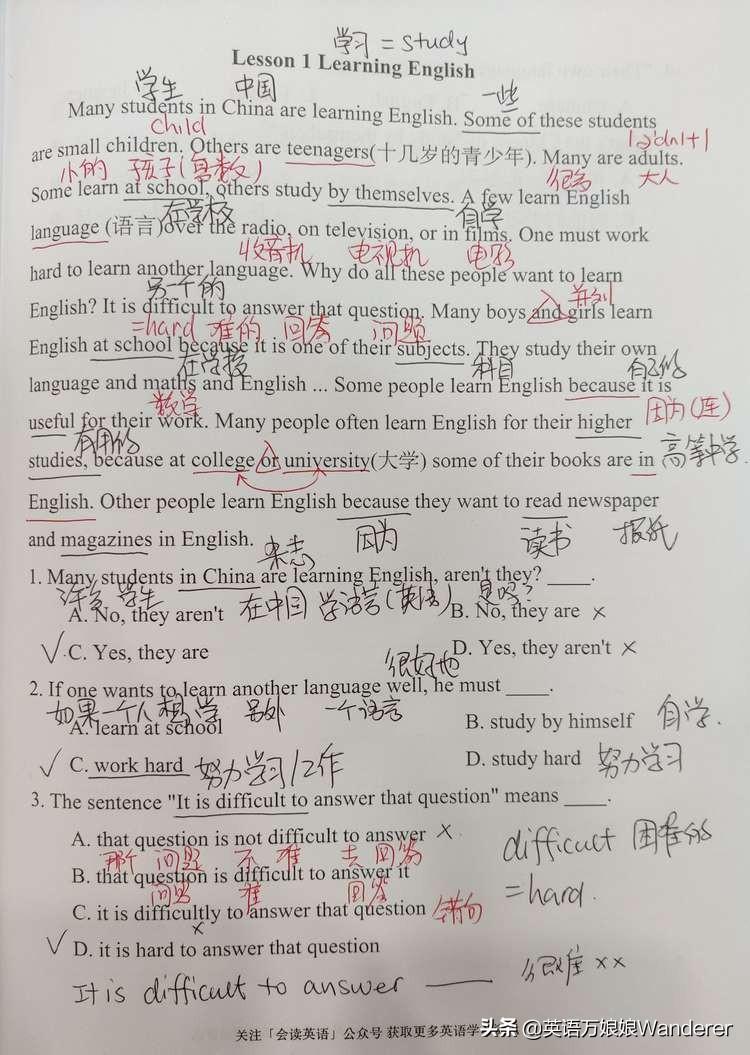 学习 = study
Lesson 1 Learning English
学生 中国 一些
Many students in China are learning English. Some of these students
child
are small children. Others are teenagers(十几岁的青少年). Many are adults.
小的 孩子(复数) 很多 大人
Some learn at school, others study by themselves. A few learn English
在学校 自学
language (语言)over the radio, on television, or in films. One must work
收音机 电视机 电影
hard to learn another language. Why do all these people want to learn
另一个的
English? It is difficult to answer that question. Many boys and girls learn
并列
=hard 难的 回答 问题
English at school because it is one of their subjects. They study their own
在学校 科目 自己的
language and maths and English ... Some people learn English because it is
数学
useful for their work. Many people often learn English for their higher
因为(连)
有用的
studies, because at college or university(大学) some of their books are in
高等
English. Other people learn English because they want to read newspaper
and magazines in English.
杂志 因为 读书 报纸
1. Many students in China are learning English, aren't they? ____.
许多 学生 在中国 学语言(英语) 是吗?
A. No, they aren't
B. No, they are ×
✓ C. Yes, they are
D. Yes, they aren't ×
很好地
2. If one wants to learn another language well, he must ____.
如果一个人想学 另外 一个语言
A. learn at school
B. study by himself 自学.
✓ C. work hard 努力学习/工作
D. study hard 努力学习
3. The sentence "It is difficult to answer that question" means ____.
A. that question is not difficult to answer ×
那个 问题 不 难 去 回答
B. that question is difficult to answer it
问题 难 回答
C. it is difficultly to answer that question 错句
×
✓ D. it is hard to answer that question
difficult 困难的
=hard.
It is difficult to answer ____ 很难××
关注「会读英语」公众号 获取更多英语学
头条 @英语万娘娘Wanderer